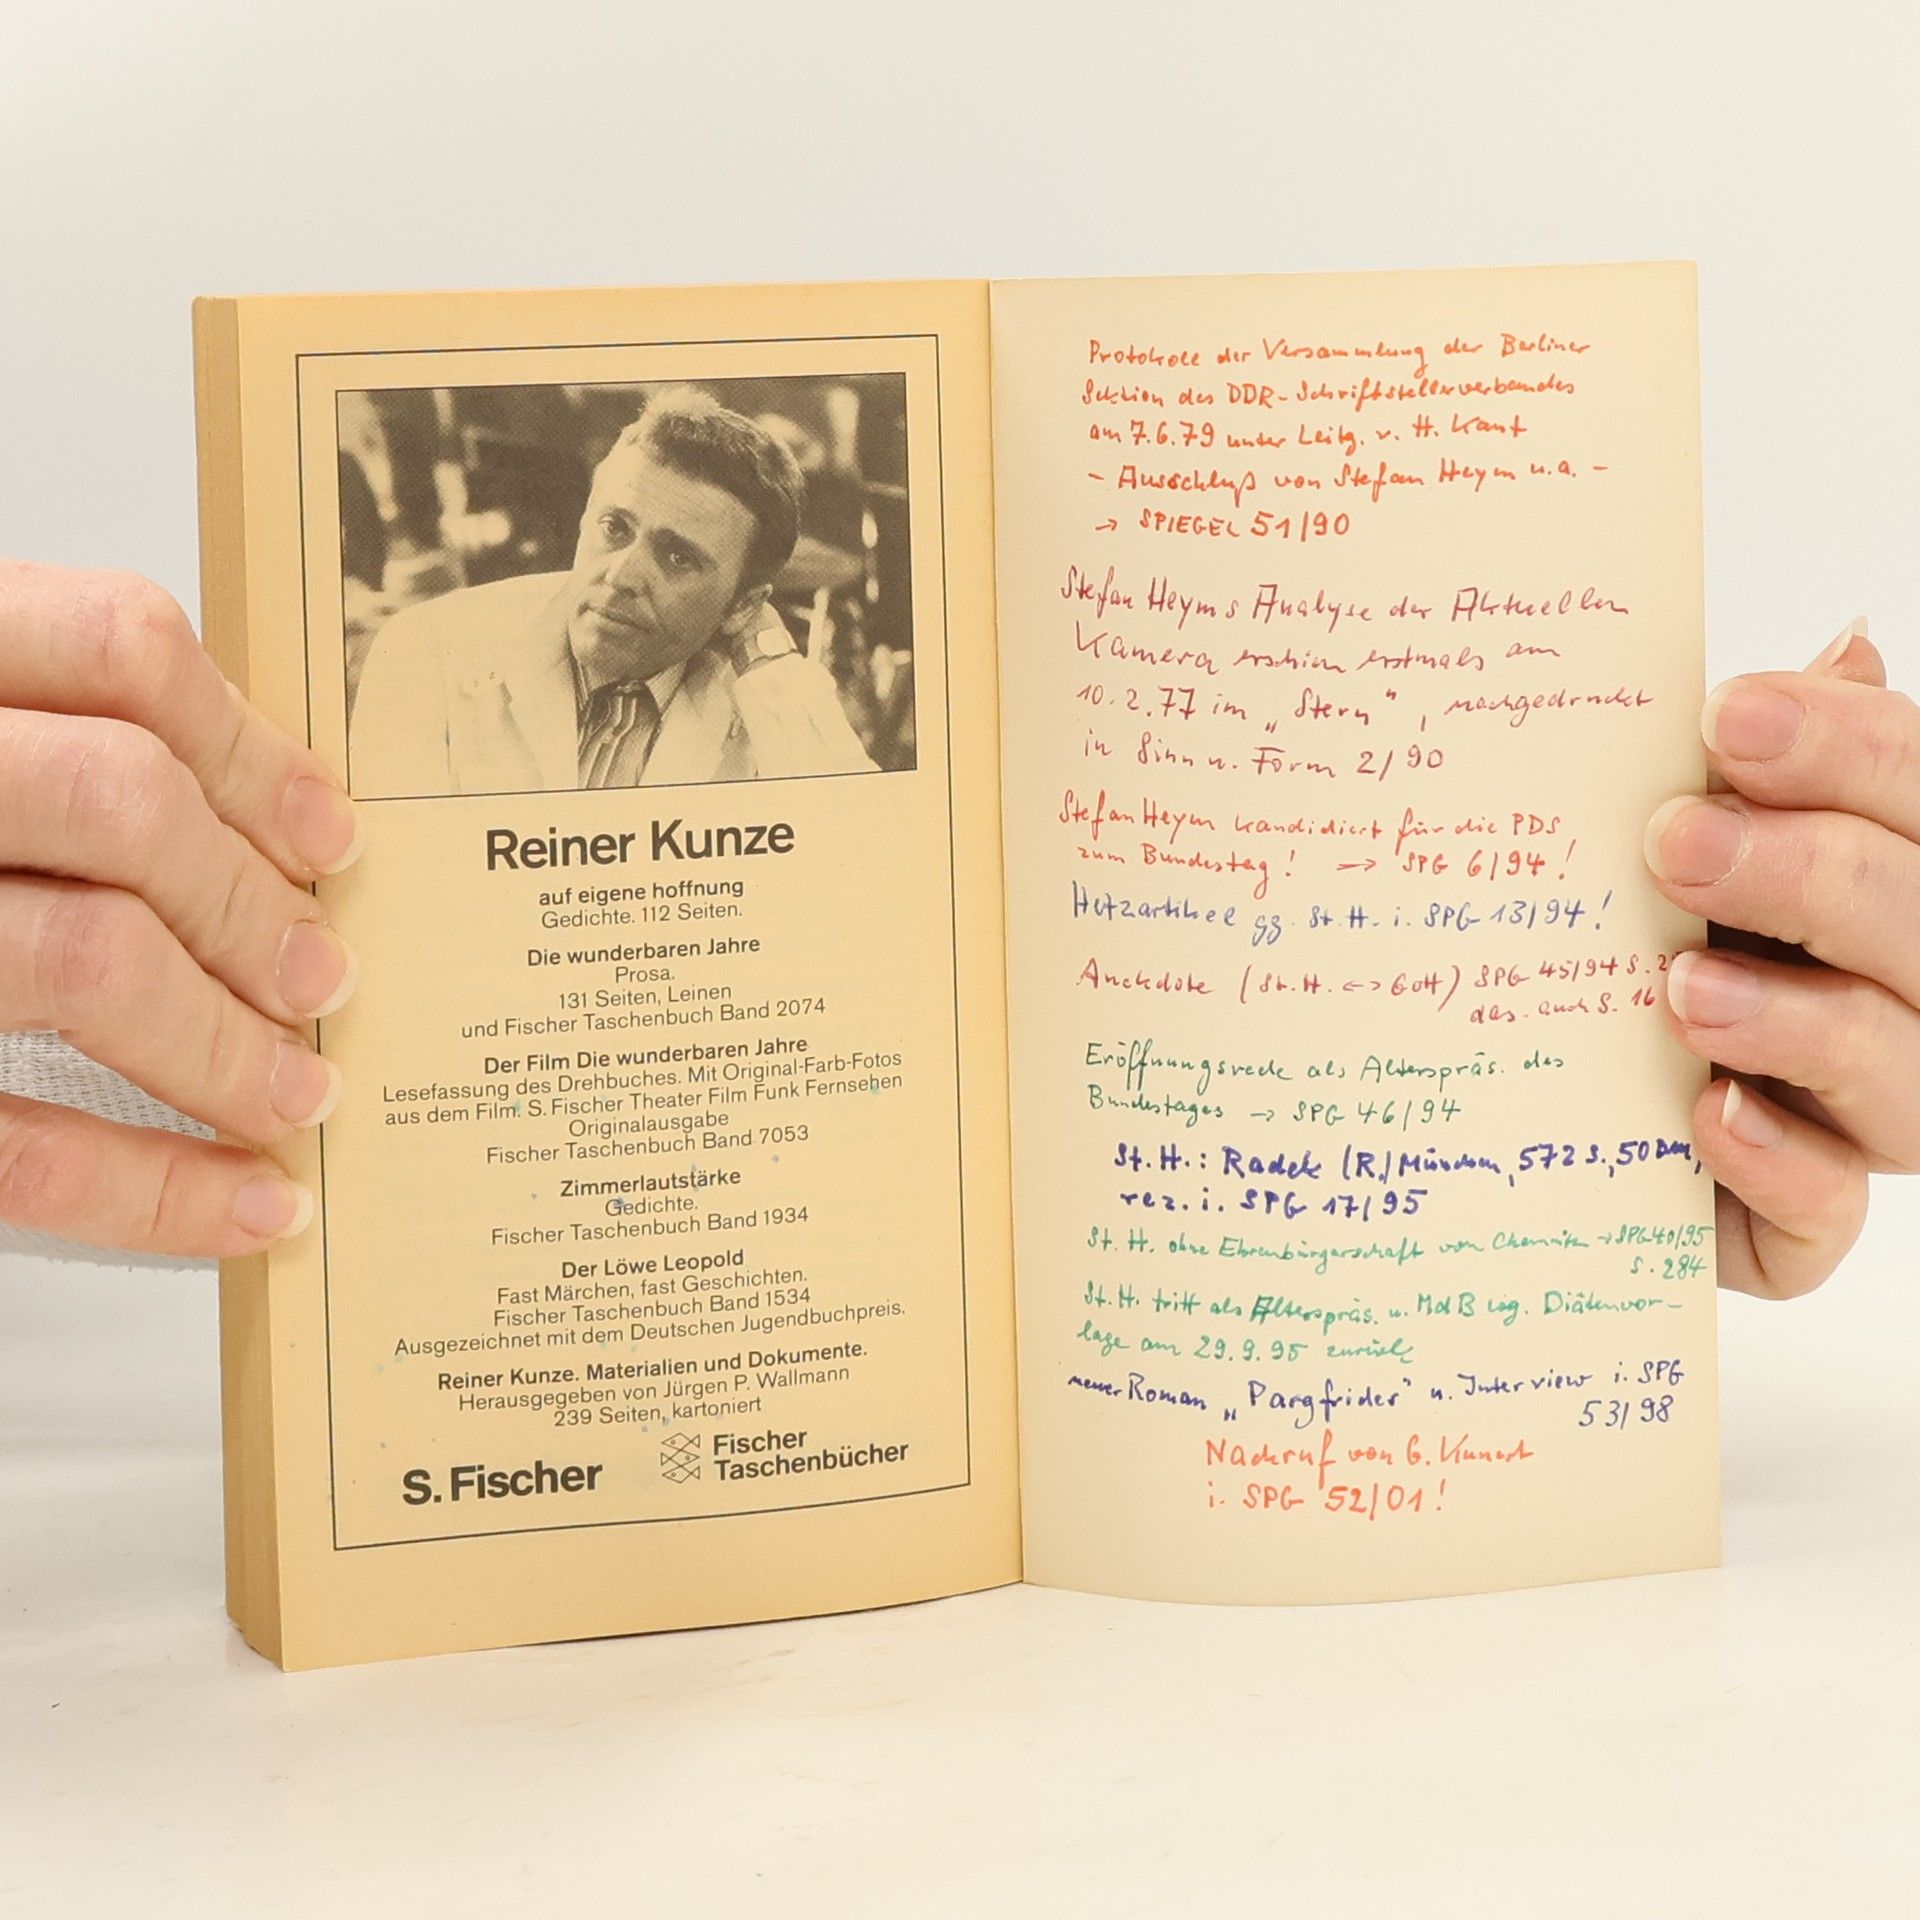 Reiner Kunze
auf eigene hoffnung
Gedichte. 112 Seiten.
Die wunderbaren Jahre
Prosa.
131 Seiten, Leinen
und Fischer Taschenbuch Band 2074
Der Film Die wunderbaren Jahre
Lesefassung des Drehbuches. Mit Original-Farb-Fotos
aus dem Film. S. Fischer Theater Film Funk Fernsehen
Originalausgabe
Fischer Taschenbuch Band 7053
Zimmerlautstärke
Gedichte.
Fischer Taschenbuch Band 1934
Der Löwe Leopold
Fast Märchen, fast Geschichten.
Fischer Taschenbuch Band 1534
Ausgezeichnet mit dem Deutschen Jugendbuchpreis.
Reiner Kunze. Materialien und Dokumente.
Herausgegeben von Jürgen P. Wallmann
239 Seiten, kartoniert
S. Fischer
Fischer
Taschenbücher
Protokolle der Versammlung der Berliner
Sektion des DDR-Schriftstellerverbandes
am 7.6.79 unter Leitg. v. H. Kant
- Ausschluß von Stefan Heym u.a. -
→ SPIEGEL 51/90
Stefan Heyms Analyse der Aktuellen
Kamera erschien erstmals am
10.2.77 im „Stern", nachgedruckt
in Sinn u. Form 2/90
Stefan Heym kandidiert für die PDS
zum Bundestag! → SPG 6/94!
Hetzartikel gg. St. H. i. SPG 13/94!
Anekdote (St. H. <-> Gott) SPG 45/94 S.
das. auch S. 16
Eröffnungsrede als Alterspräs. des
Bundestages → SPG 46/94
St. H.: Radek (R.) München, 572 S., 50 DM,
rez. i. SPG 17/95
St. H. ohne Ehrenbürgerschaft von Chemnitz → SPG 40/95
S. 284
St. H. tritt als Alterspräs. u. MdB wg. Diätenvor-
lage am 29.9.95 zurück
neuer Roman „Pargfrider" u. Interview i. SPG
53/98
Nachruf von G. Kunert
i. SPG 52/01!